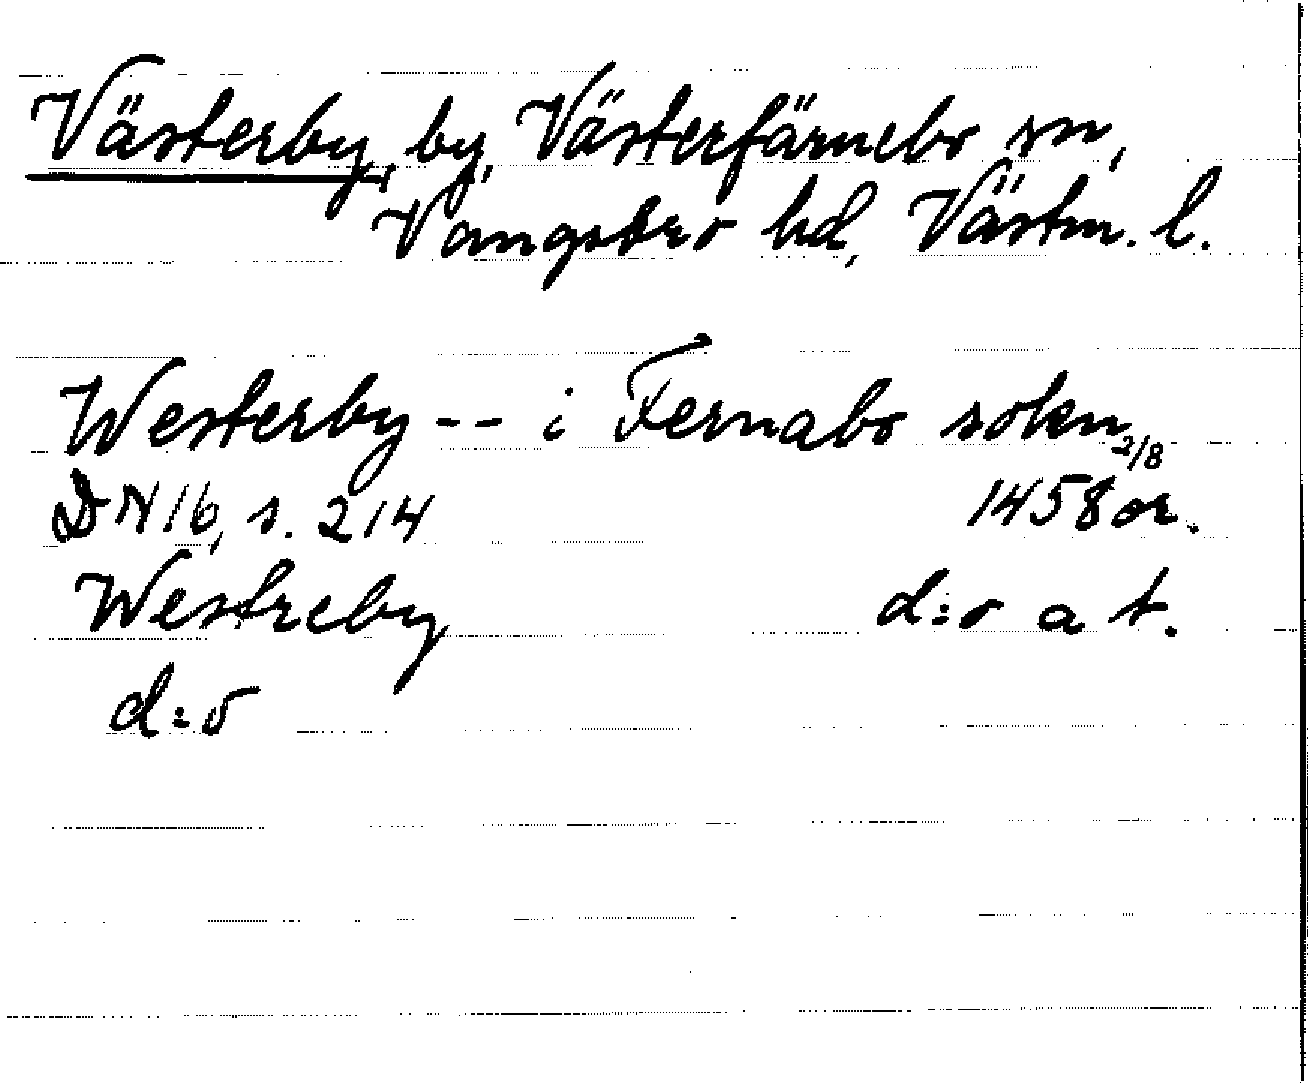 Västerby, by, Västerfärnebo sn,
Vangsbro hd, Västm. l.
Westerby -- i Fernabo sokn
DN 16, s. 214 2/8 1458 or.
Westreby d:o a t.
d:o